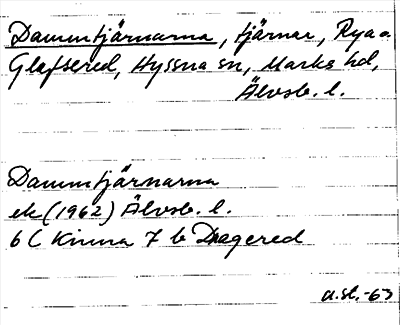 Dammtjärnarna, tjärnar, Rya o.
Glafsered, Hyssna sn, Marks hd,
Älvsb. l.
Dammtjärnarna
ek (1962) Älvsb. l.
6 C Kinna 7 b Dragered
a.st.-63